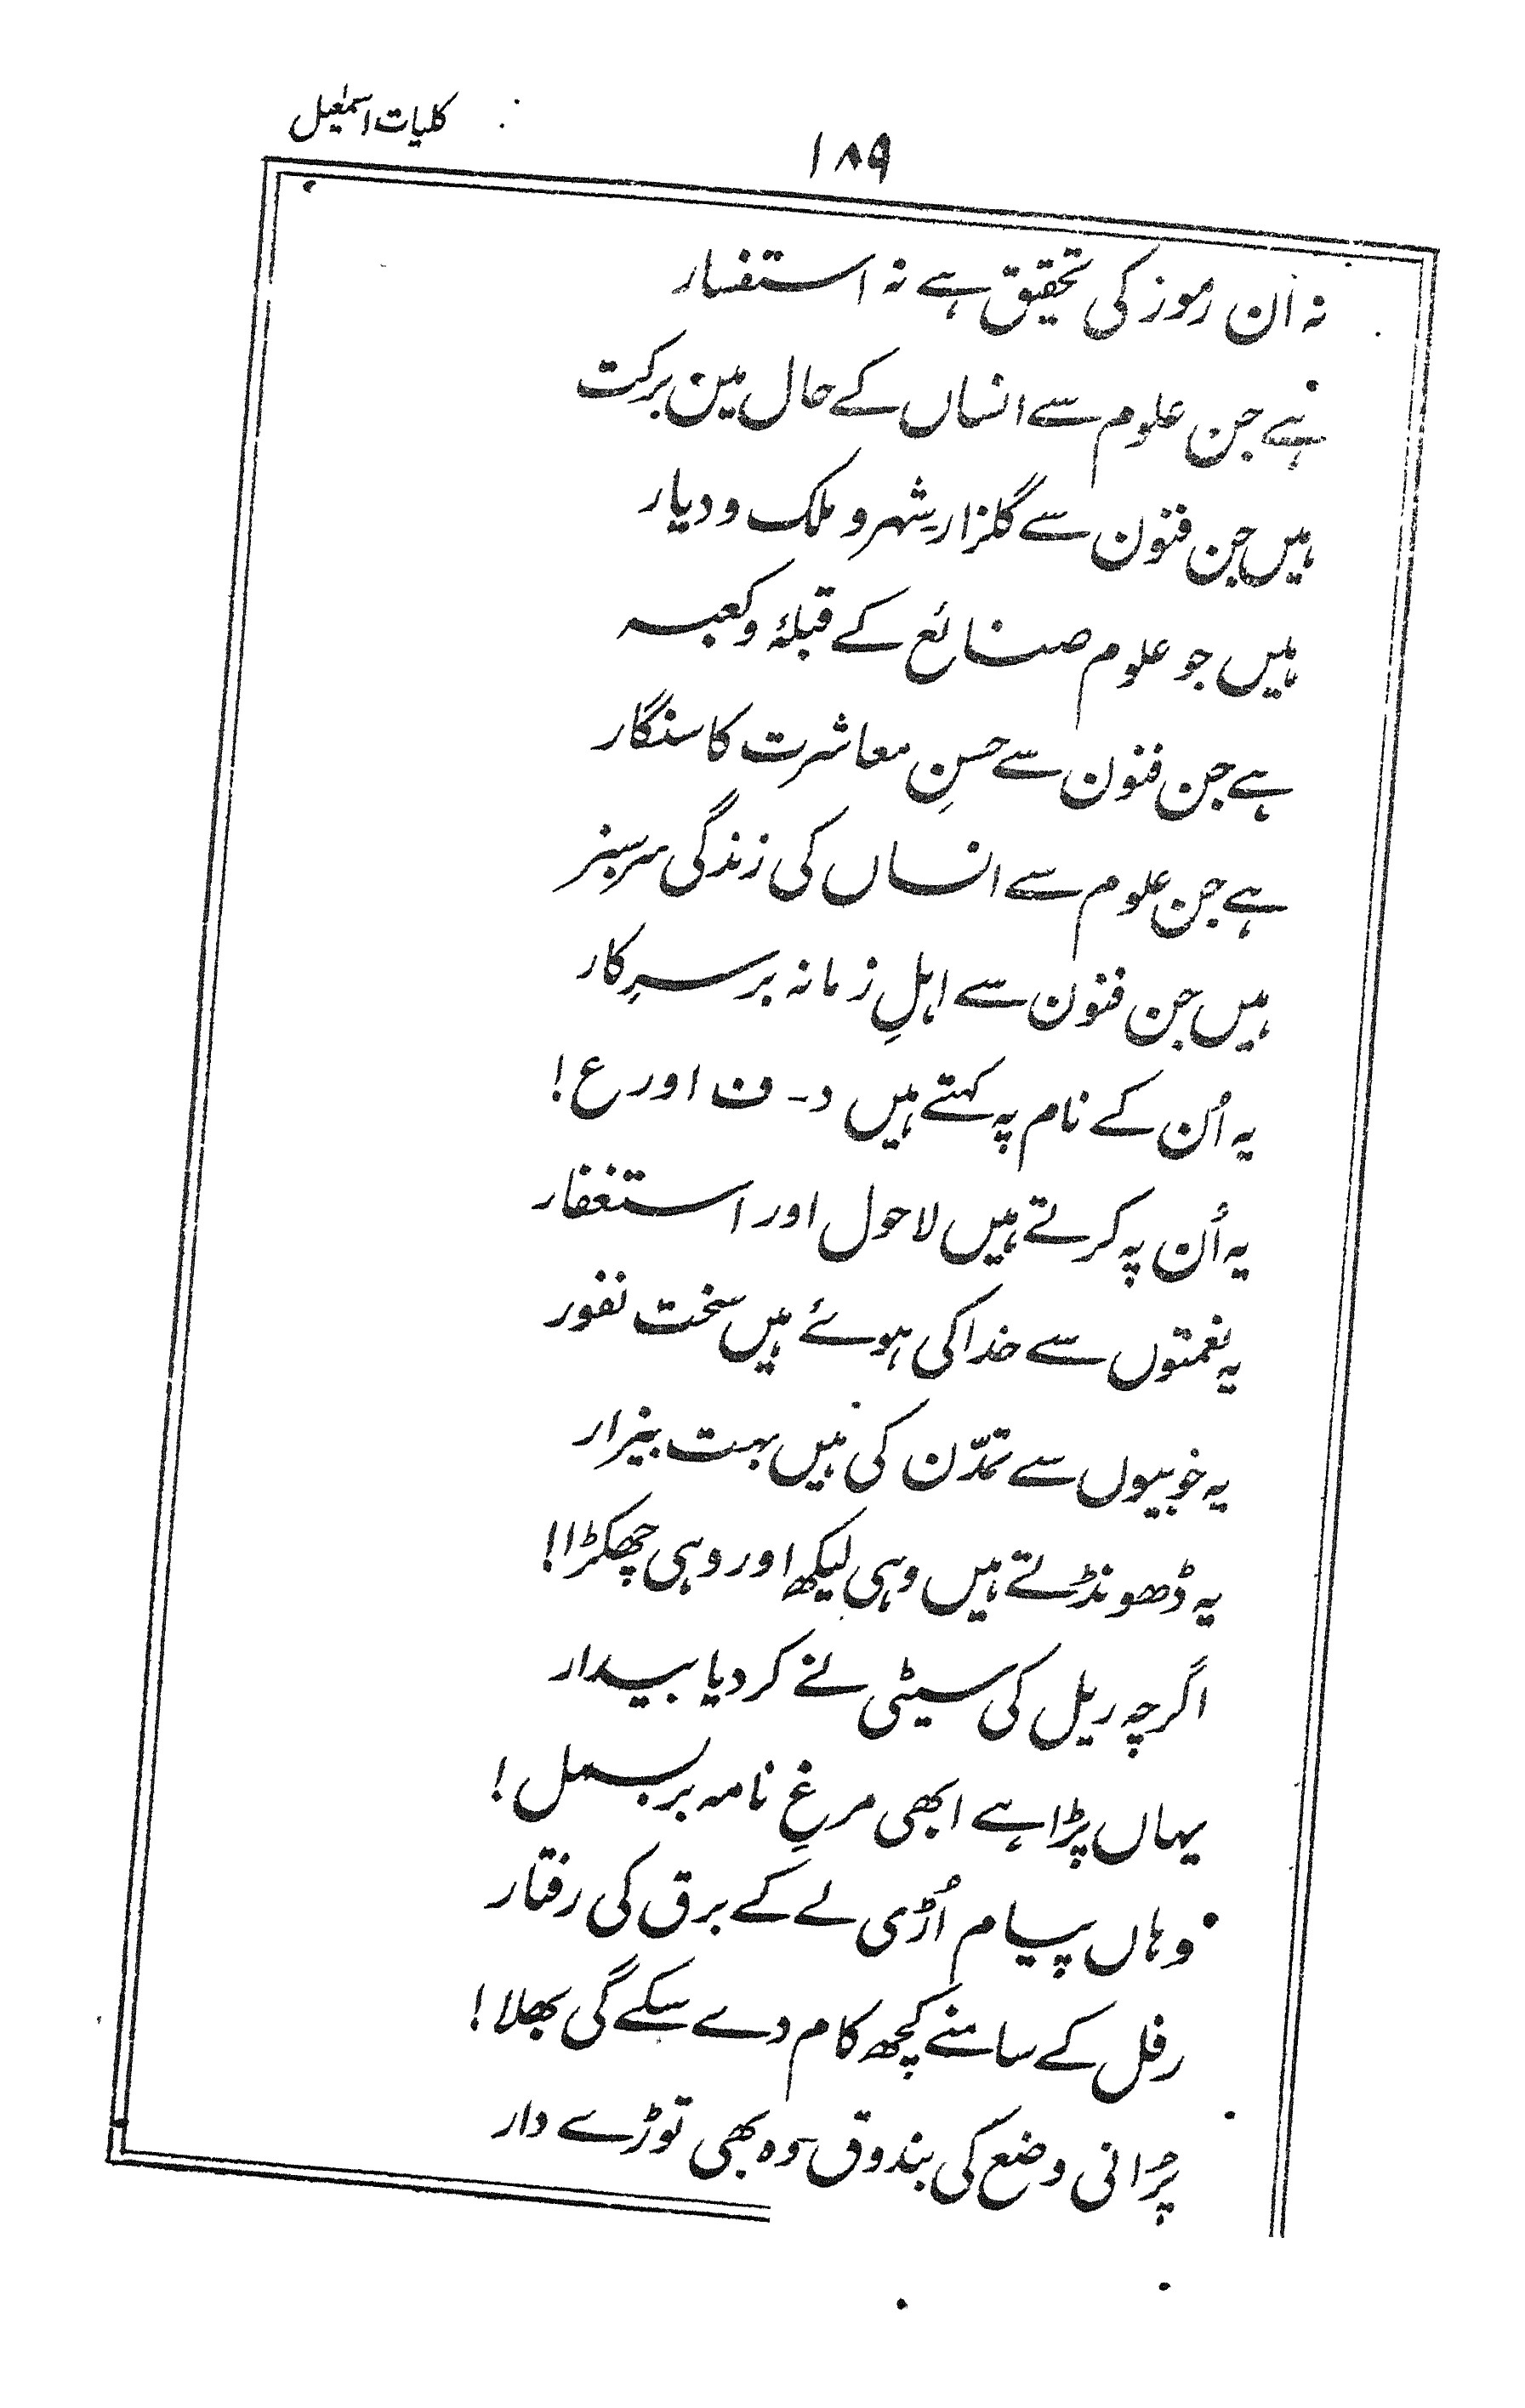 کلیات اسمٰعیل
۱۸۹
نہ ان رموز کی تحقیق ہے نہ استفسار
ہے جن علوم سے انساں کے حال مین برکت
ہیں جن فنون سے گلزار شہر و ملک و دیار
ہیں جو علوم صنائع کے قبلۂ و کعبہ
ہے جن فنون سے حسنِ معاشرت کا سنگار
ہے جن علوم سے انساں کی زندگی سرسبز
ہیں جن فنون سے اہلِ زمانہ برسرِ کار
یہ اُن کے نام پہ کہتے ہیں د۔ ف اور ع!
یہ اُن پہ کرتے ہیں لاحول اور استغفار
یہ نعمتوں سے خدا کی ہوئے ہیں سخت نفور
یہ خوبیوں سے تمدّن کی ہیں بہت بیزار
یہ ڈھونڈتے ہیں وہی لیکھ اور وہی چھکڑا!
اگرچہ ریل کی سیٹی نے کر دیا بیدار
یہاں پڑا ہے ابھی مرغِ نامہ بر بسمل!
وہاں پیام اُڑی لے کے برق کی رفتار
رفل کے سامنے کچھ کام دے سکے گی بھلا!
پُرانی وضع کی بندوق وہ بھی توڑے دار